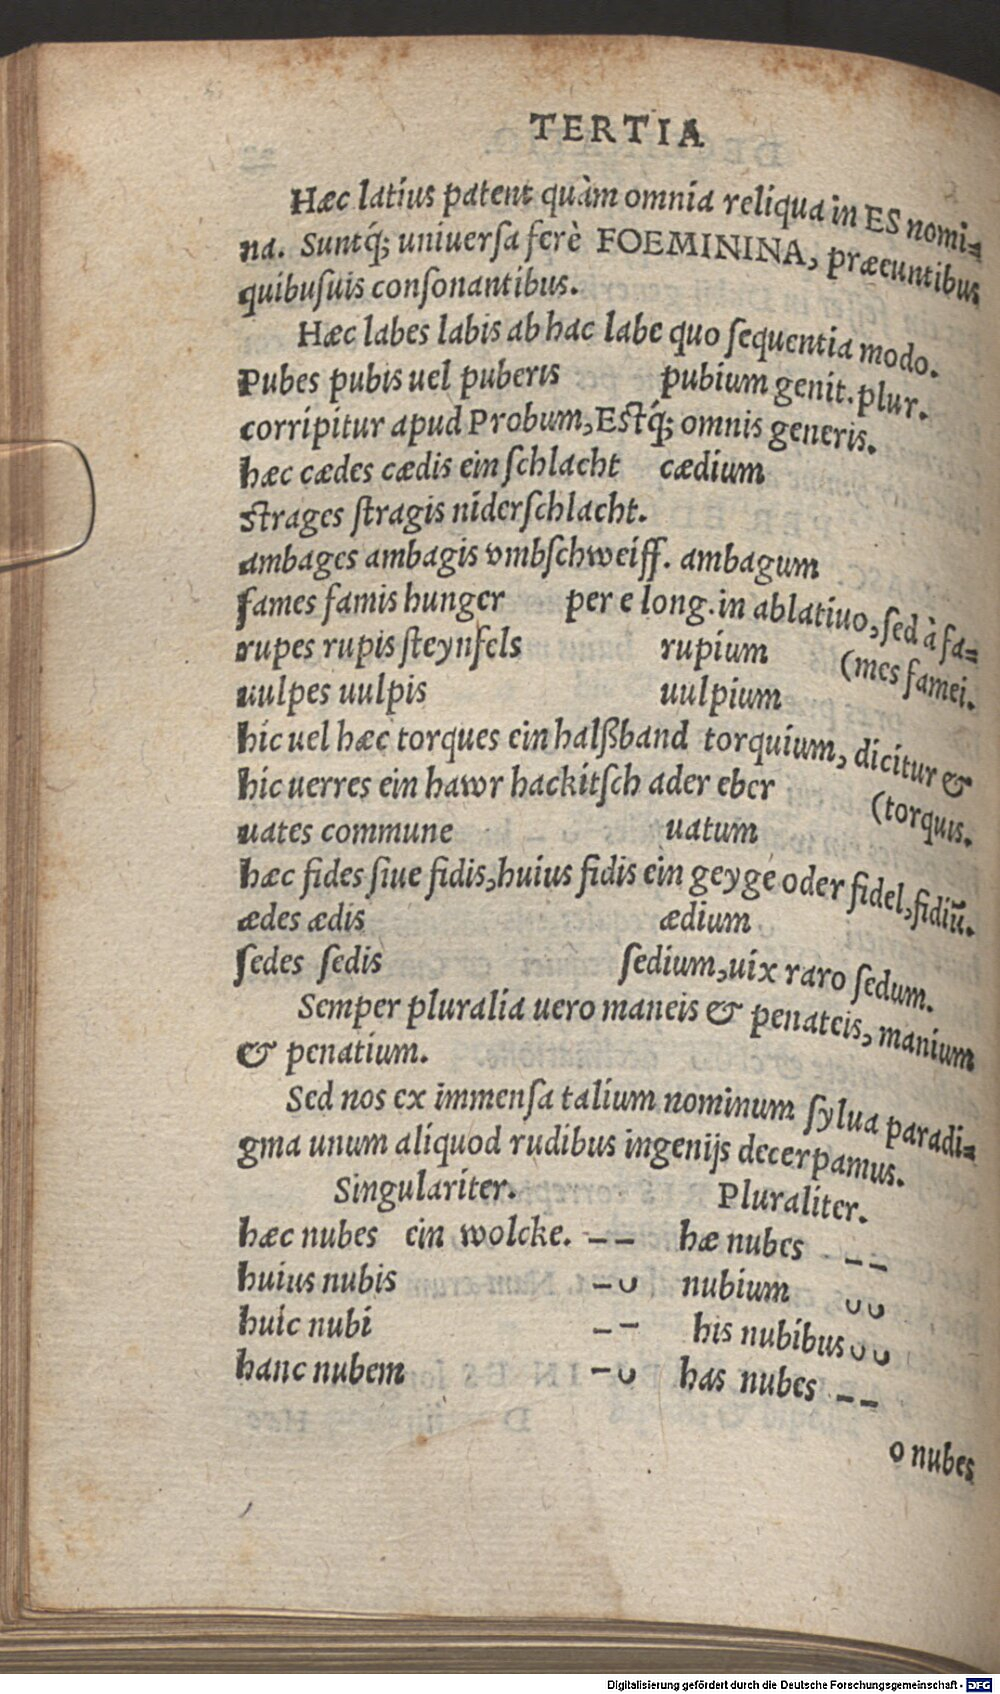 TERTIA
Hæc latius patent quàm omnia reliqua in ES nomi⸗
na. Suntq́; uniuerſa ferè FOEMININA, præeuntibus
quibuſuis conſonantibus.
Hæc labes labis ab hac labe quo ſequentia modo.
Pubes pubis uel puberis pubium genit. plur.
corripitur apud Probum, Eſtq́; omnis generis.
hæc cædes cædis ein ſchlacht cædium
Strages ſtragis niderſchlacht.
ambages ambagis vmbſchweiff. ambagum
fames famis hunger per e long. in ablatiuo, ſed à fa⸗
rupes rupis ſteynfels rupium (mes famei.
uulpes uulpis uulpium
hic uel hæc torques ein halßband torquium, dicitur &
hic uerres ein hawr hackitſch ader eber (torquis.
uates commune uatum
hæc fides ſiue fidis, huius fidis ein geyge oder fidel, fidiū.
ædes ædis ædium
ſedes ſedis ſedium, uix raro ſedum.
Semper pluralia uero maneis & penateis, manium
& penatium.
Sed nos ex immenſa talium nominum ſylua paradi⸗
gma unum aliquod rudibus ingenijs decerpamus.
Singulariter. Pluraliter.
hæc nubes ein wolcke. – – hæ nubes – –
huius nubis – ᴗ nubium ᴗ ᴗ
huic nubi – – his nubibus ᴗ ᴗ
hanc nubem – ᴗ has nubes – –
o nubes
Digitalisierung gefördert durch die Deutsche Forschungsgemeinschaft - DFG